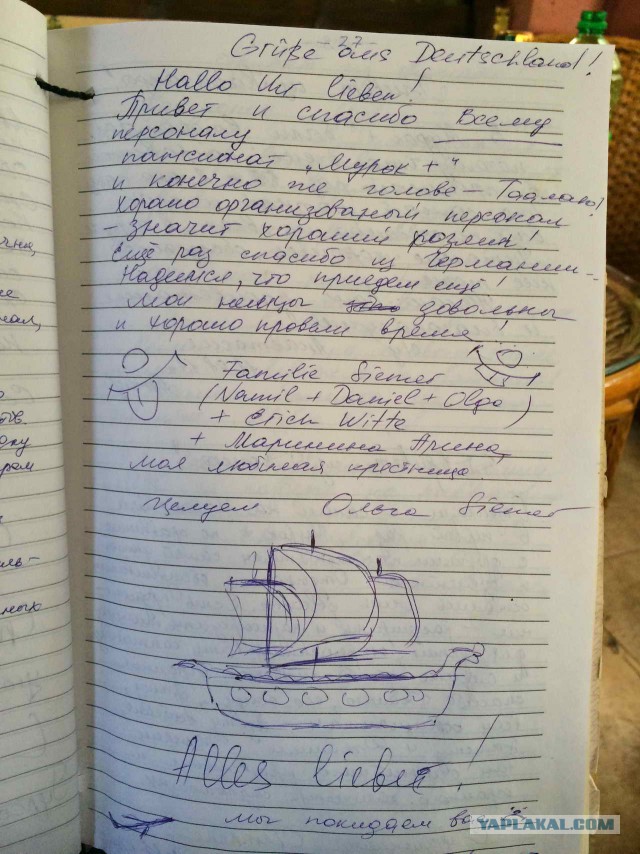 - 27 -
Grüße aus Deutschland!
Hallo Ihr lieben!
Привет и спасибо Всему
персоналу
пансионат „Мурок +"
и конечно же голове –
хорошо организованый персонал
– значит хороший хозяин!
Ещё раз спасибо из Германии –
Надеемся, что приедем ещё!
Мои немцы довольны
и хорошо провели время!
Familie Siemer
(Namil + Daniel + Olga)
+ Erich Witte
+ Маринина Арина,
моя любимая крестница.
Целуем Ольга Siemer
Alles liebe!
мы покидаем
YAPLAKAL.COM